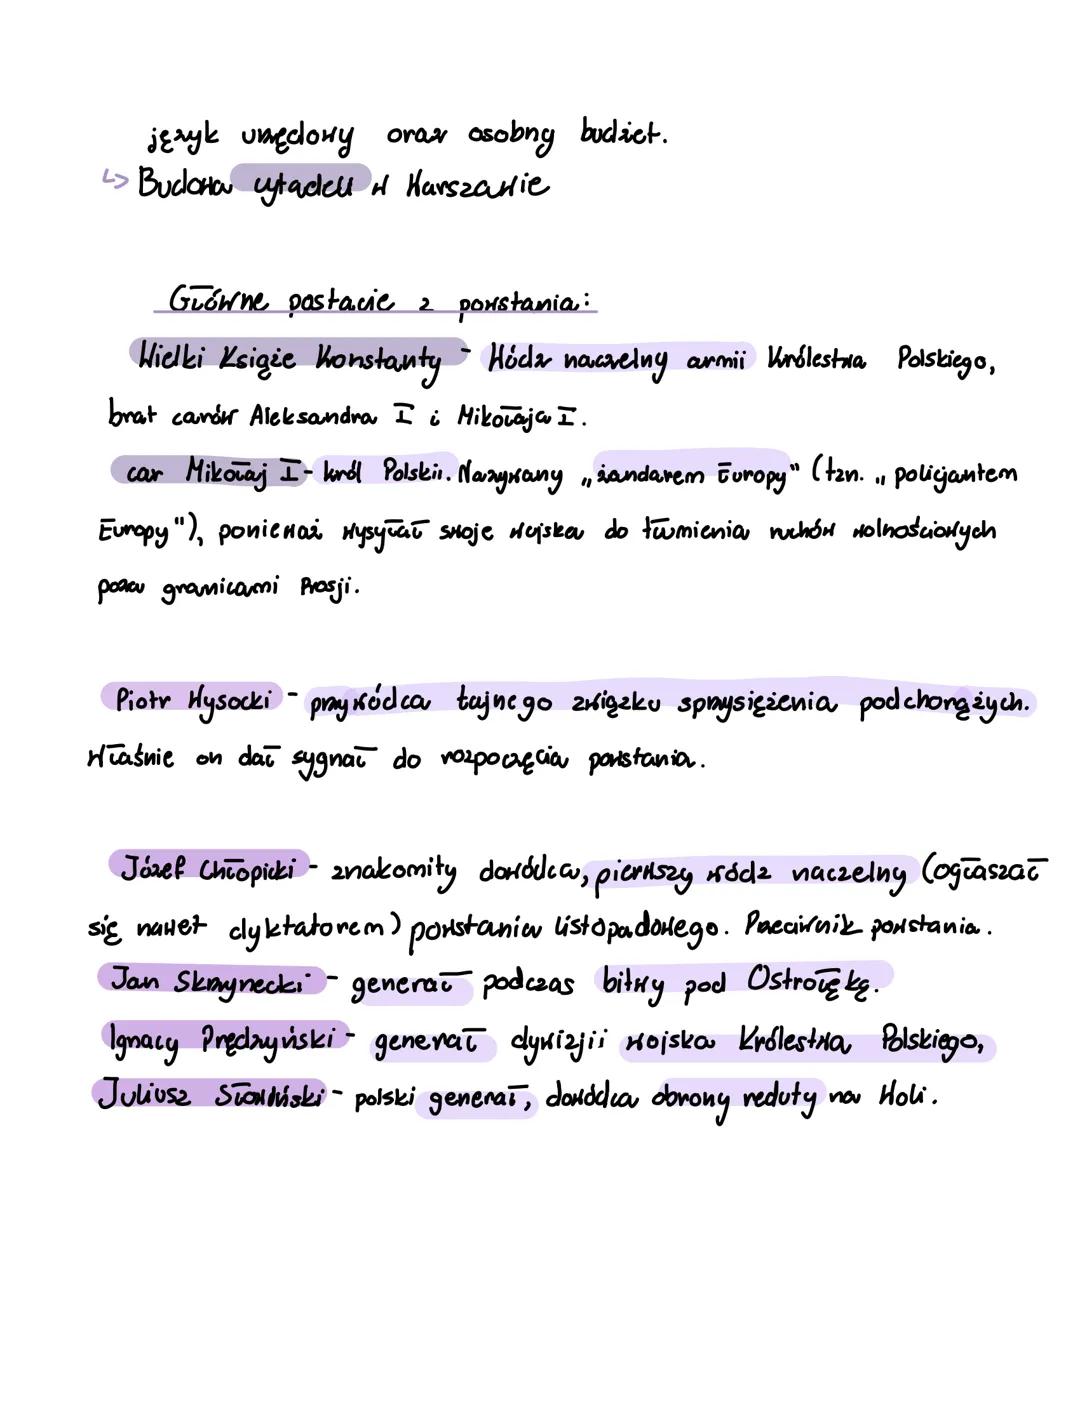 język urzędowy oraz osobny budżet.
↳ Budowa cytadeli w Warszawie
Główne postacie z powstania:
Wielki Książe Konstanty - Wódz naczelny armii Królestwa Polskiego,
brat carów Aleksandra I i Mikołaja I.
car Mikołaj I - król Polskii. Nazywany „żandarem Europy" (tzn. „policjantem
Europy"), ponieważ wysyłał swoje wojska do tłumienia ruchów wolnościowych
poza granicami Rosji.
Piotr Wysocki - przywódca tajnego związku sprzysiężenia podchorążych.
Właśnie on dał sygnał do rozpoczęcia powstania.
Józef Chłopicki - znakomity dowódca, pierwszy wódz naczelny (ogłaszał
się nawet dyktatorem) powstania listopadowego. Przeciwnik powstania.
Jan Skrzynecki - generał podczas bitwy pod Ostrołęką.
Ignacy Prędzyński - generał dywizji wojska Królestwa Polskiego,
Juliusz - polski generał, dowódca obrony reduty na Woli.